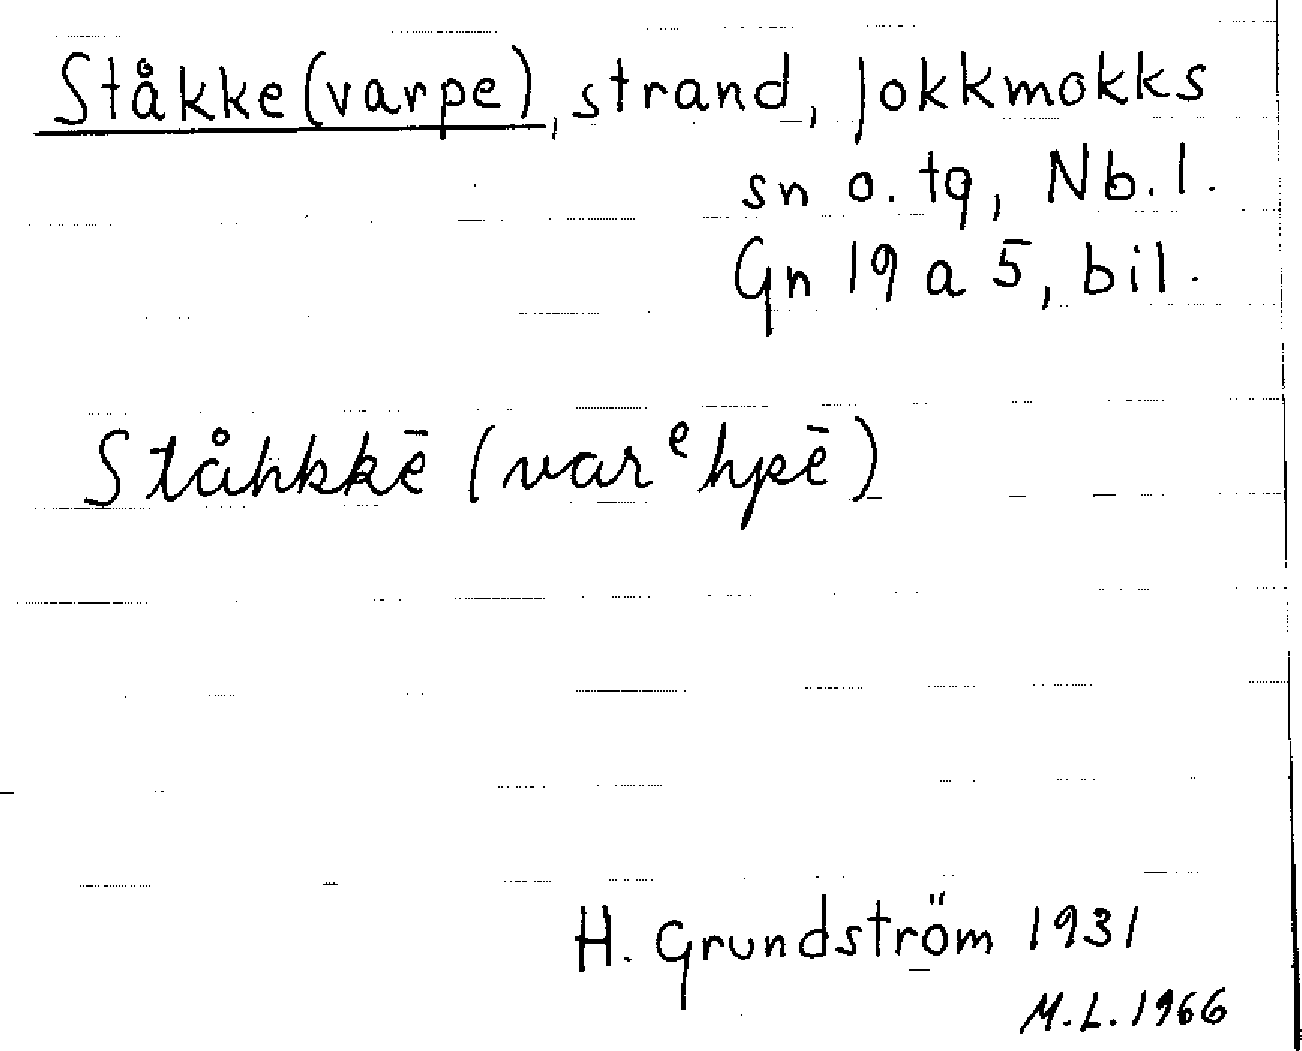 Ståkke(varpe), strand, Jokkmokks
sn o. tg, Nb.l.
Gn 19 a 5, bil.
Ståhkkē (varᵉhpē)
H. Grundström 1931
M.L. 1966